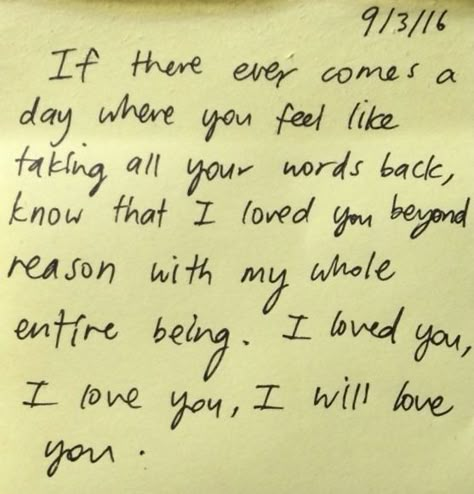 9/3/16
If there ever comes a
day where you feel like
taking all your words back,
know that I loved you beyond
reason with my whole
entire being. I loved you,
I love you, I will love
you.